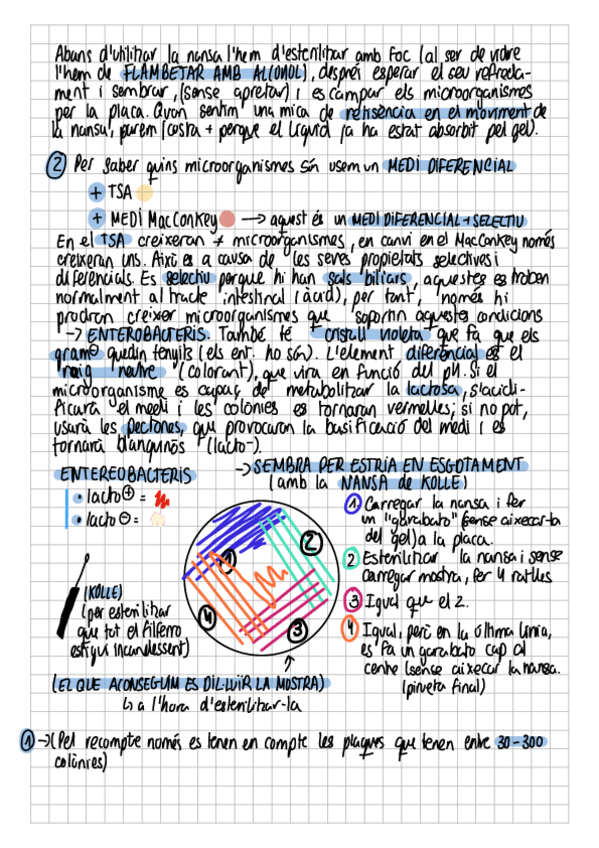 Abans d'utilitzar la nansa l'hem d'esterilitzar amb foc (al ser de vidre
l'hem de FLAMBEJAR AMB ALCOHOL), després esperar el seu refreda-
ment i sembrar, (sense apretar) i escampar els microorganismes
per la placa. Quan sentim una mica de resistència en el moviment de
la nansa, parem (costa + perquè el líquid ja ha estat absorbit pel gel).
② Per saber quins microorganismes són usem un MEDI DIFERENCIAL
+ TSA
+ MEDI MacConkey → aquest és un MEDI DIFERENCIAL + SELECTIU
En el TSA creixeran + microorganismes, en canvi en el MacConkey només
creixeran uns. Això és a causa de les seves propietats selectives i
diferencials. Es selectiu perquè hi han sals biliars, aquestes es troben
normalment al tracte intestinal (àcid), per tant, només hi
podran créixer microorganismes que soportin aquestes condicions
→ ENTEROBACTERIS. També té cristall violeta que fa que els
gram⊖ quedin tenyits (els ent. ho són). L'element diferencial és el
roig neutre (colorant), que vira en funció del pH. Si el
microorganisme és capaç de metabolitzar la lactosa, s'acidi-
ficarà el medi i les colònies es tornaran vermelles; si no pot,
usarà les peptones, que provocaran la basificació del medi i es
tornarà blanquinós (lacto-).
ENTEREOBACTERIS
• lacto⊕ =
• lacto⊖ =
→ SEMBRA PER ESTRIA EN ESGOTAMENT
(amb la NANSA de KOLLE)
1
2
3
4
① Carregar la nansa i fer
un "garabato" (sense aixecar-la
del gel) a la placa.
② Esterilitzar la nansa i sense
carregar mostra, fer 4 ratlles
③ Igual que el 2.
④ Igual, però en la última línia,
es fa un garabato cap al
centre (sense aixecar la nansa.
(pinveta final)
(KOLLE)
(per esterilitzar
que tot el filferro
estigui incandessent)
(EL QUE ACONSEGUIM ES DIL·LUIR LA MOSTRA)
↳ a l'hora d'esterilitzar-la
① → (Pel recompte només es tenen en compte les plaques que tenen entre 30-300
colònies)